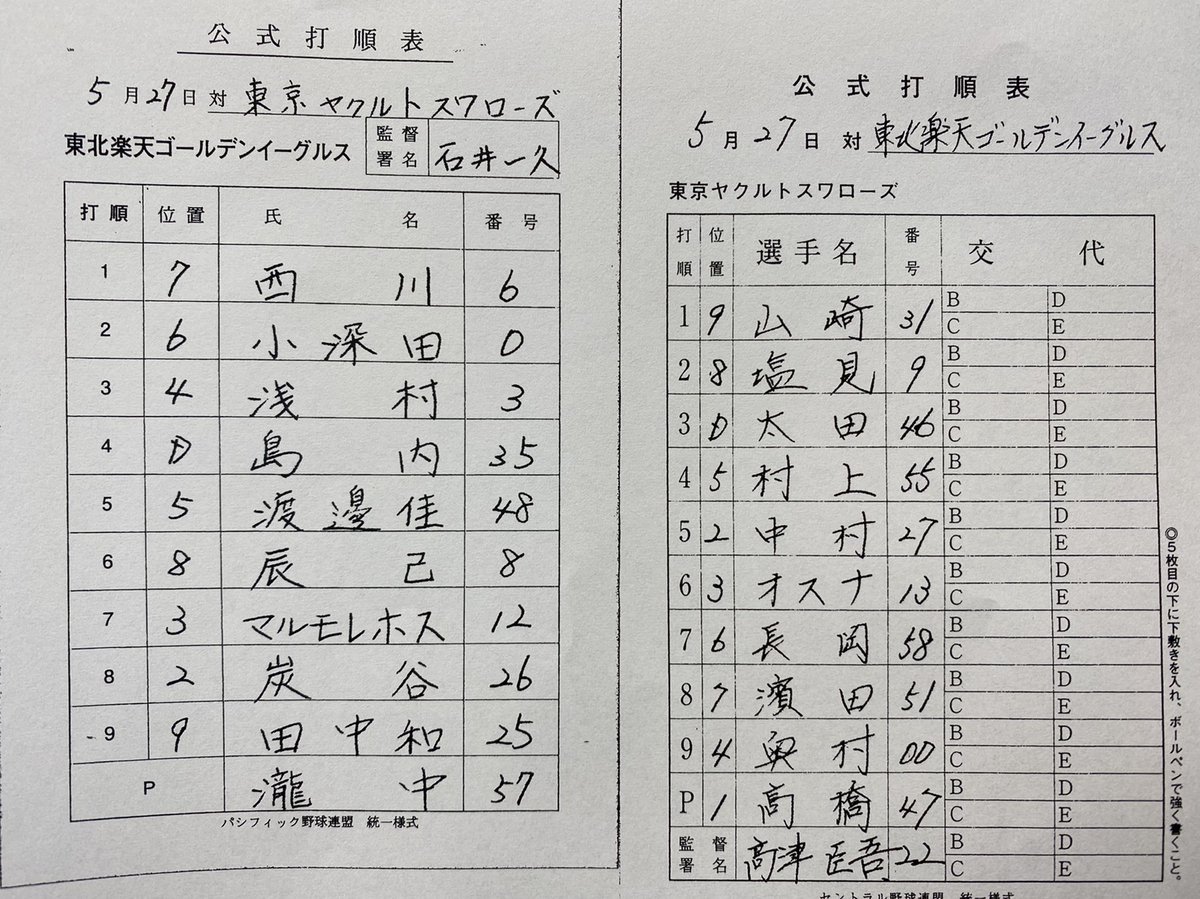 公式打順表
5月27日対 東京ヤクルトスワローズ
東北楽天ゴールデンイーグルス 監督署名 石井一久
打順 位置 氏名 番号
1 7 西川 6
2 6 小深田 0
3 4 浅村 3
4 D 島内 35
5 5 渡邊佳 48
6 8 辰己 8
7 3 マルモレホス 12
8 2 炭谷 26
9 9 田中和 25
P 瀧中 57
パシフィック野球連盟 統一様式
公式打順表
5月27日 対 東北楽天ゴールデンイーグルス
東京ヤクルトスワローズ
打順 位置 選手名 番号 交代
1 9 山崎 31 B D
C E
2 8 塩見 9 B D
C E
3 D 太田 46 B D
C E
4 5 村上 55 B D
C E
5 2 中村 27 B D
C E
6 3 オスナ 13 B D
C E
7 6 長岡 58 B D
C E
8 7 濱田 51 B D
C E
9 4 奥村 00 B D
C E
P 1 高橋 47 B D
C E
監督署名 高津臣吾 22 B D
C E
セントラル野球連盟 統一様式
◎5枚目の下に下敷きを入れ、ボールペンで強く書くこと。